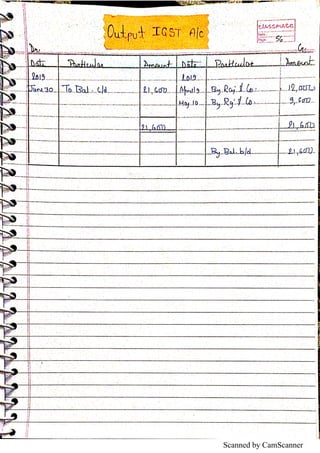 Output IGST A/c
classmate
56
Dr. Cr.
Date Particular Amount Date Particular Amount
2019 2019
June 30 To Bal. c/d 21,600 April 9 By Raj & Co. 12,000
May 10 By Raj & Co. 9,600
21,600 21,600
By Bal. b/d 21,600
Scanned by CamScanner